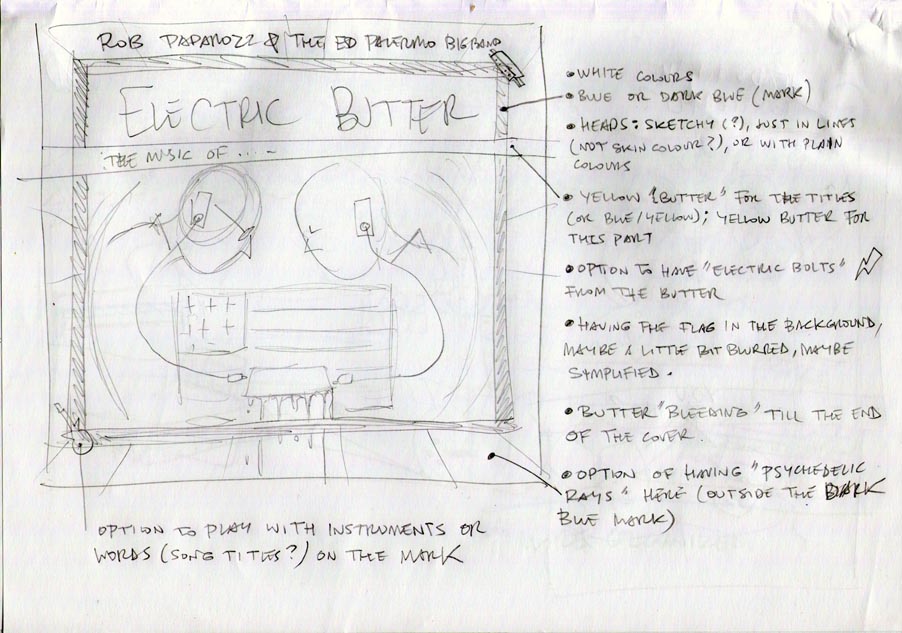 ROB PAPAROZZI & THE ED PALERMO BIG BAND
ELECTRIC BUTTER
THE MUSIC OF ....-
• WHITE COLOURS
• BLUE OR DARK BLUE (MARK)
• HEADS: SKETCHY (?), JUST IN LINES
(NOT SKIN COLOUR?), OR WITH PLAIN
COLOURS
• YELLOW "BUTTER" FOR THE TITLES
(OR BLUE/YELLOW); YELLOW BUTTER FOR
THIS PART
• OPTION TO HAVE "ELECTRIC BOLTS"
FROM THE BUTTER
• HAVING THE FLAG IN THE BACKGROUND,
MAYBE A LITTLE BIT BLURRED, MAYBE
SYMPLIFIED.
• BUTTER "BLEEDING" TILL THE END
OF THE COVER.
• OPTION OF HAVING "PSYCHEDELIC
RAYS" HERE (OUTSIDE THE DARK
BLUE MARK)
OPTION TO PLAY WITH INSTRUMENTS OR
WORDS (SONG TITLES?) ON THE MARK